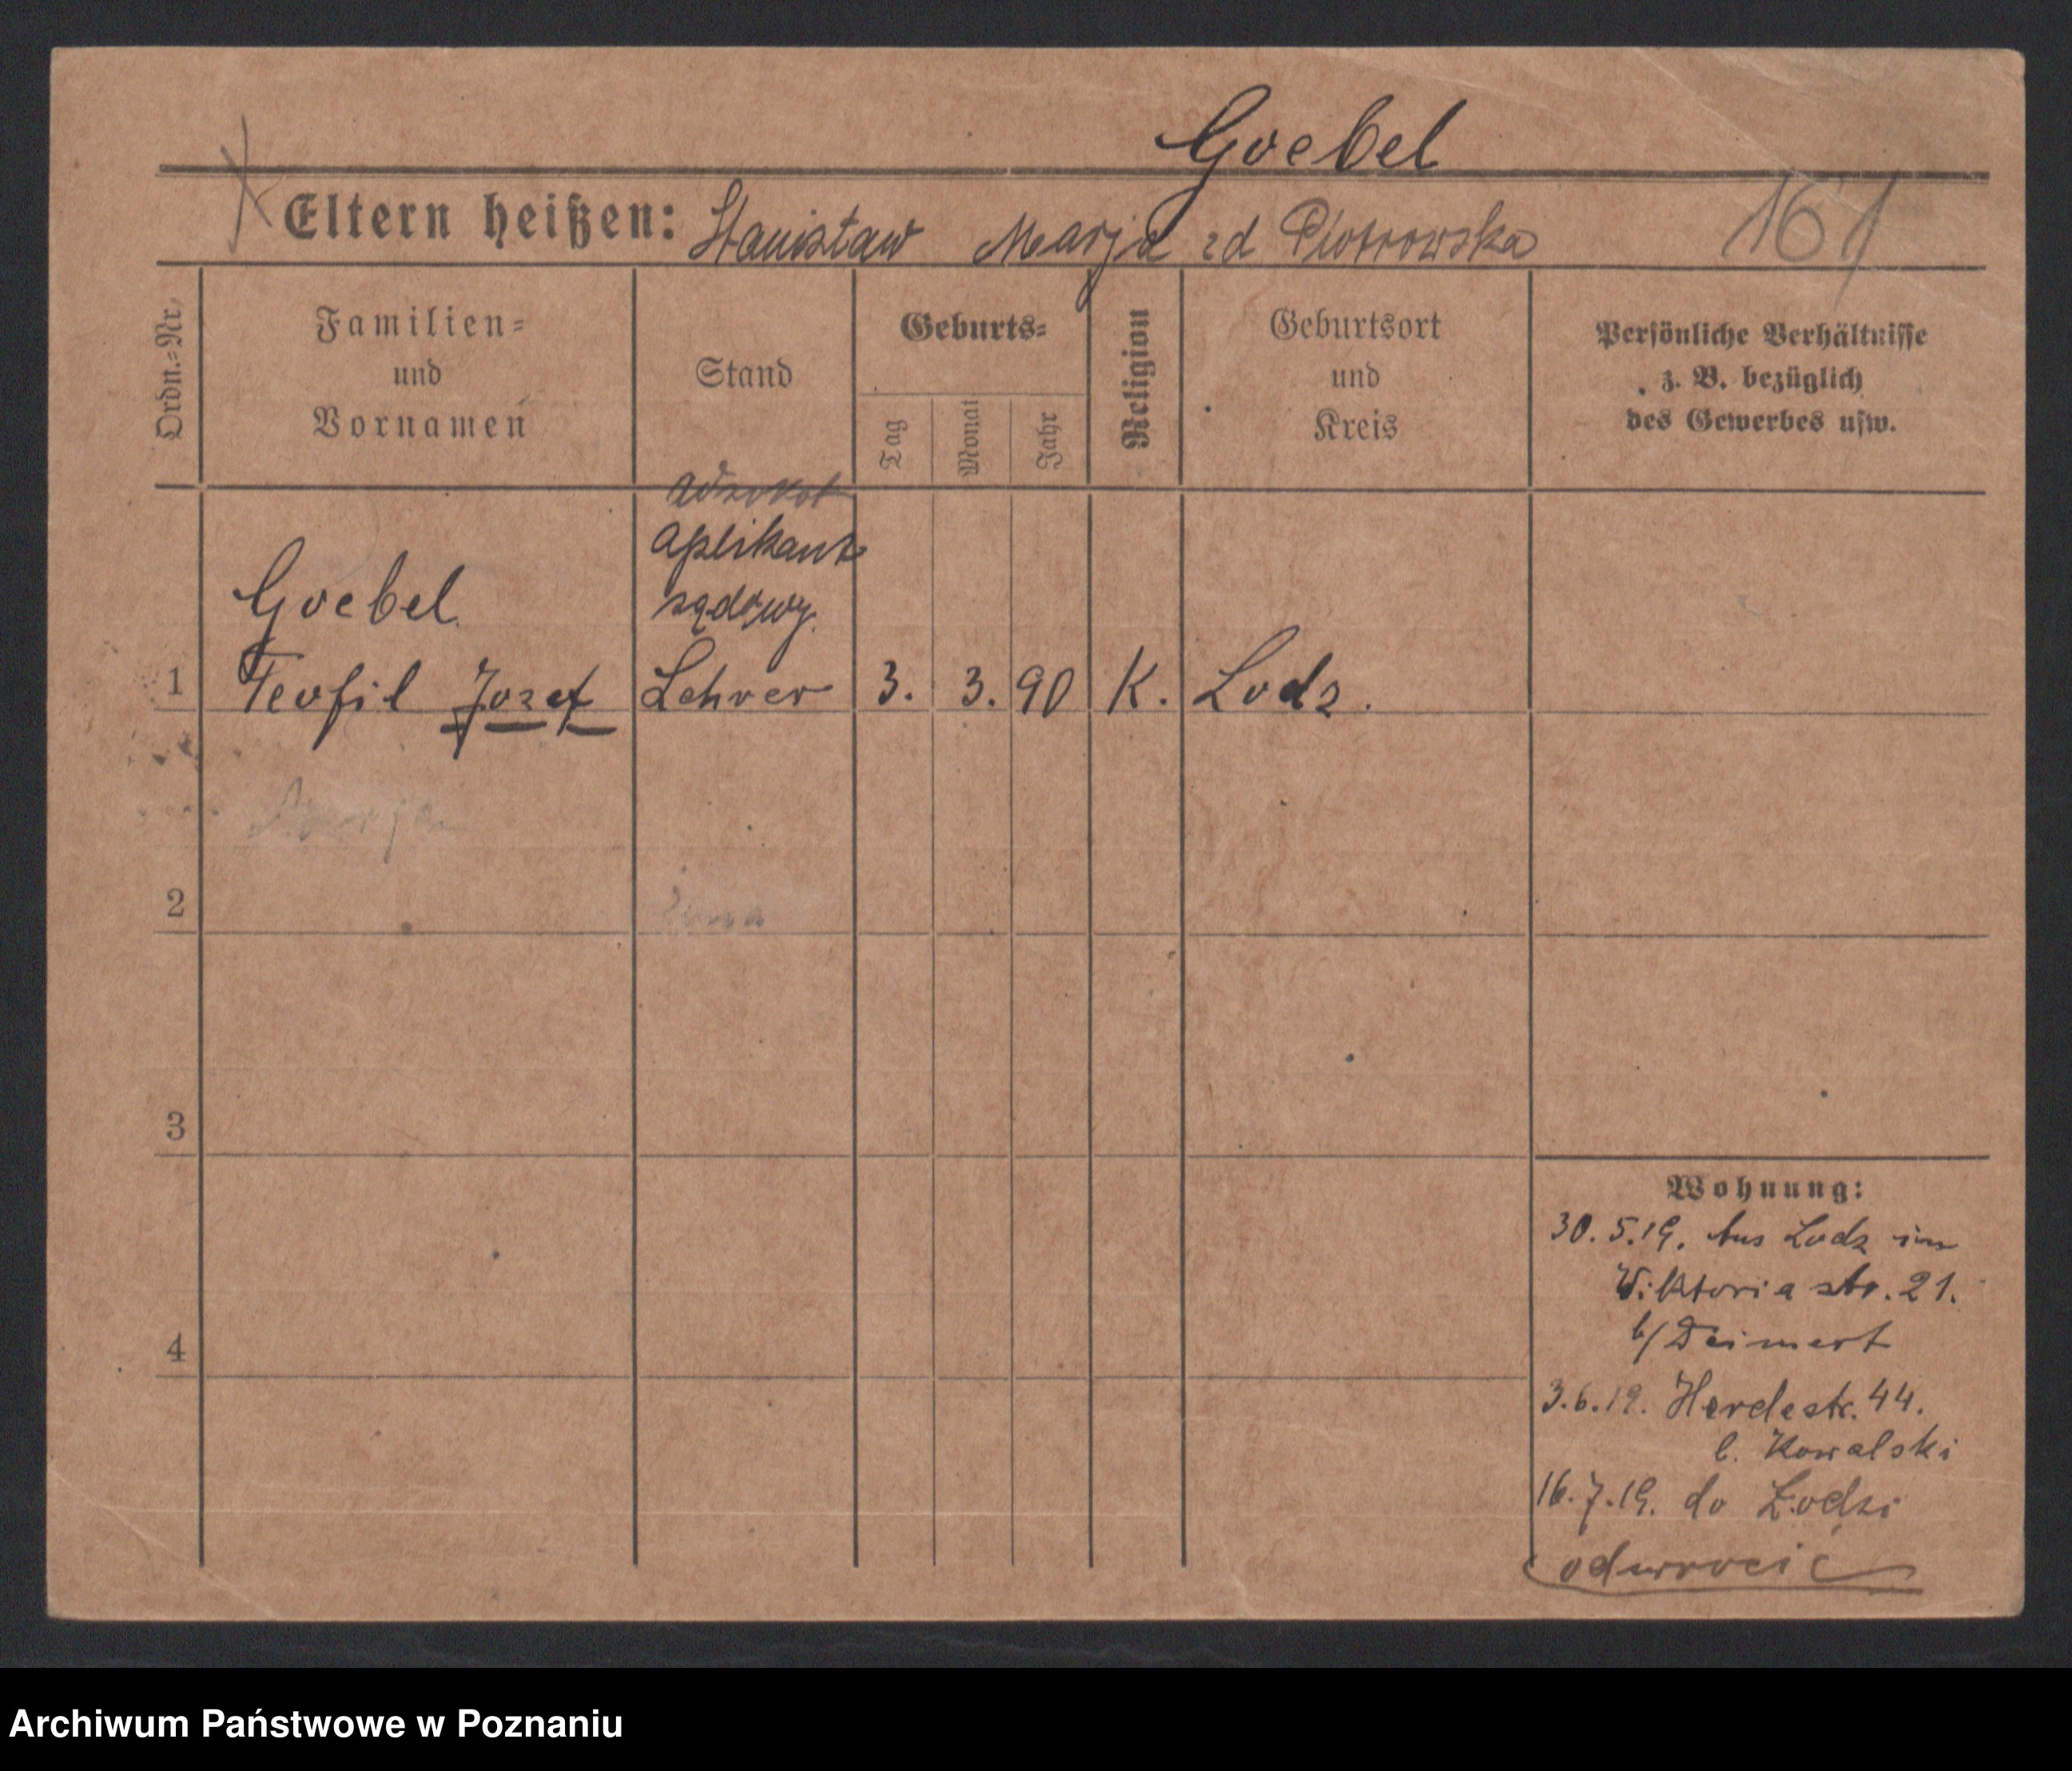 Goebel
Eltern heißen: Stanisław Marja zd Piotrowska 161
Ordn.-Nr.
Familien-
und
Vornamen
Stand
Geburts-
Tag
Monat
Jahr
Religion
Geburtsort
und
Kreis
Persönliche Verhältnisse
z. B. bezüglich
des Gewerbes usw.
adwokat
aplikant
sądowy.
Goebel
1 Teofil Jozef Lehrer 3. 3. 90 K. Lodz.
Marja
2 żona
3
4
Wohnung:
30.5.19. Aus Lodz im
Viktoria str. 21.
b/ Deimert
3.6.19. Herdestr. 44.
b. Kowalski
16.7.19. do Łodzi
odwrocić
Archiwum Państwowe w Poznaniu